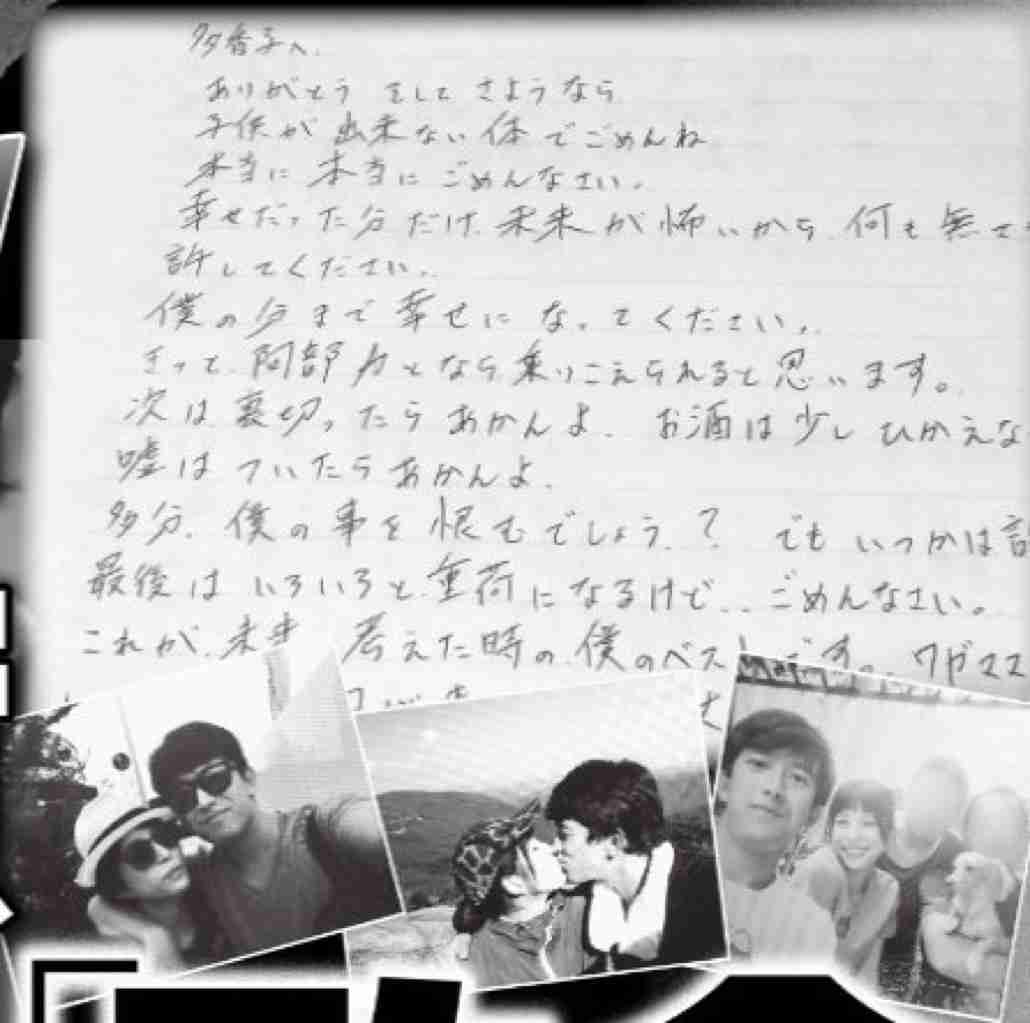 多香子へ.
ありがとう そして さようなら
子供が 出来ない 体 で ごめんね
本当に 本当に ごめんなさい.
幸せだった 分だけ. 未来 が 怖いから 何も 無
許してください.
僕の 分まで 幸せに なってください.
きっと. 阿部 力 となら. 乗りこえられると思います。
次は 裏切ったら あかんよ. お酒は 少し ひかえな
嘘は ついたら あかんよ.
多分. 僕の 事を 恨むでしょう.? でも いつかは
最後は いろいろと. 重荷になるけど.. ごめんなさい。
これが. 未来 考えた 時の. 僕のベス です。. ワガママ